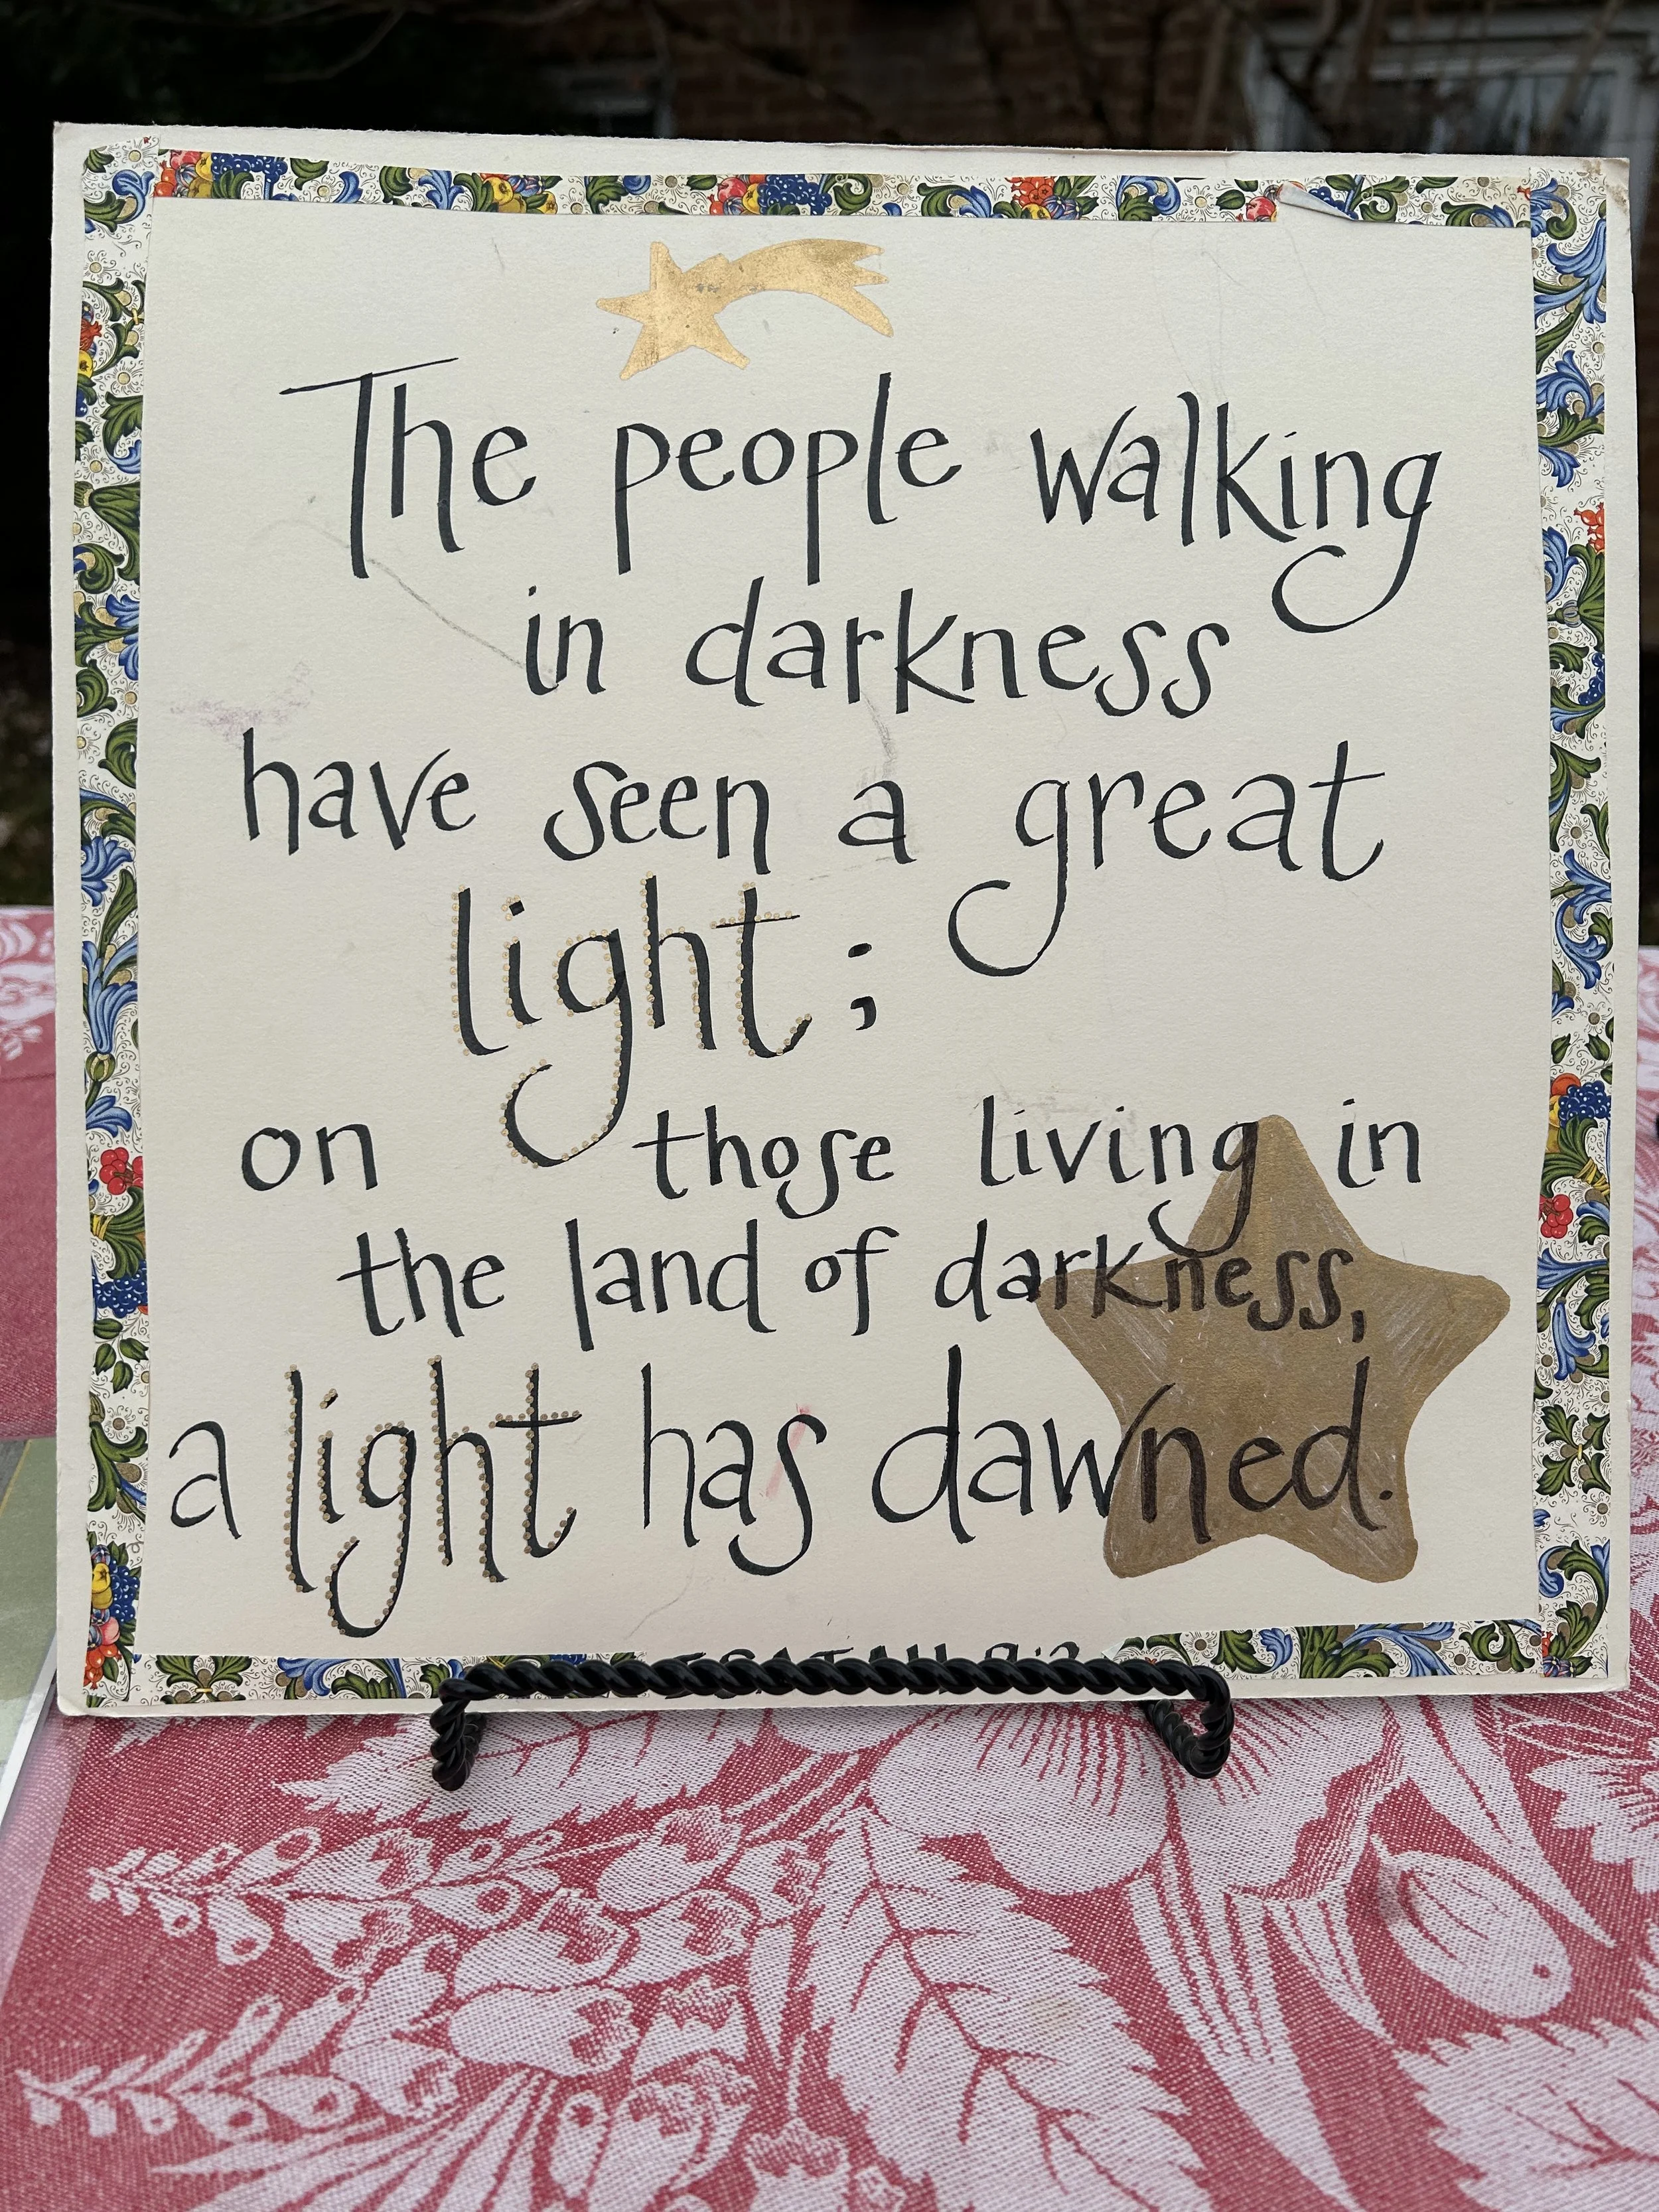 The people walking
in darkness
have seen a great
light;
on those living in
the land of darkness,
a light has dawned.
ISAIAH 9:2